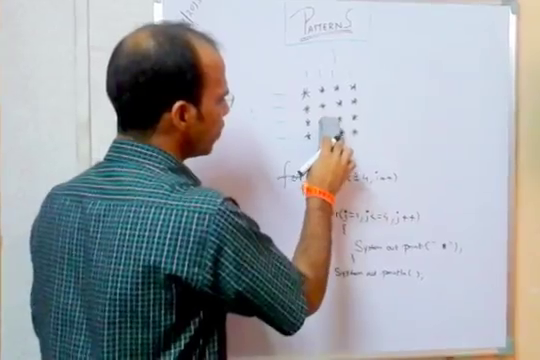 PATTERNS
* * * *
* * * *
* *
* *
for 4, i++)
(j=1; j<=4; j++)
{
System.out.print(" * ");
}
System.out.println( );